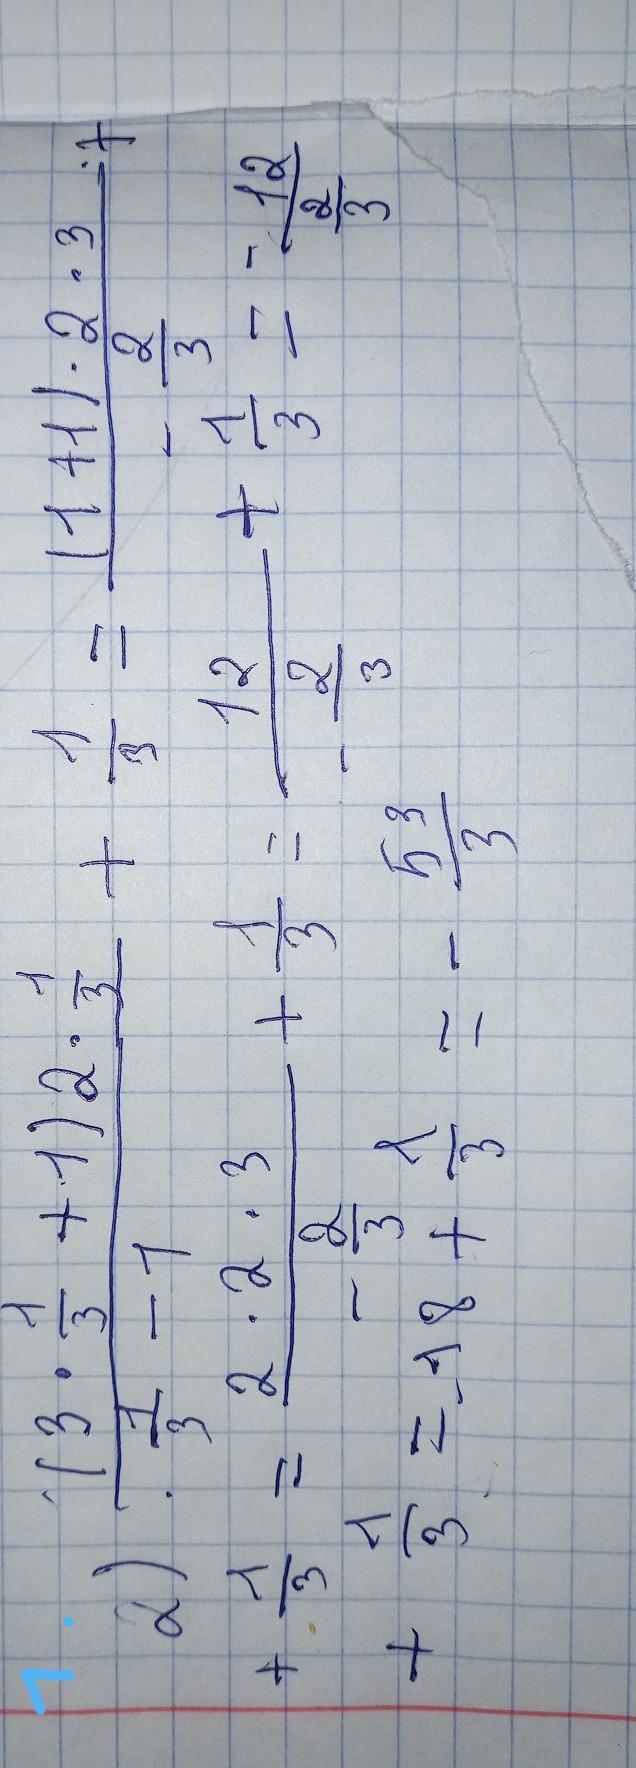 1.
a) (3 · 1/3 + 1) 2 · 1/3 / (1/3 - 1) + 1/3 = (1 + 1) · 2 · 3 / (- 2/3) +
+ 1/3 = 2 · 2 · 3 / (- 2/3) + 1/3 = 12 / (- 2/3) + 1/3 = - 12 / (2/3)
+ 1/3 = -18 + 1/3 = - 53/3